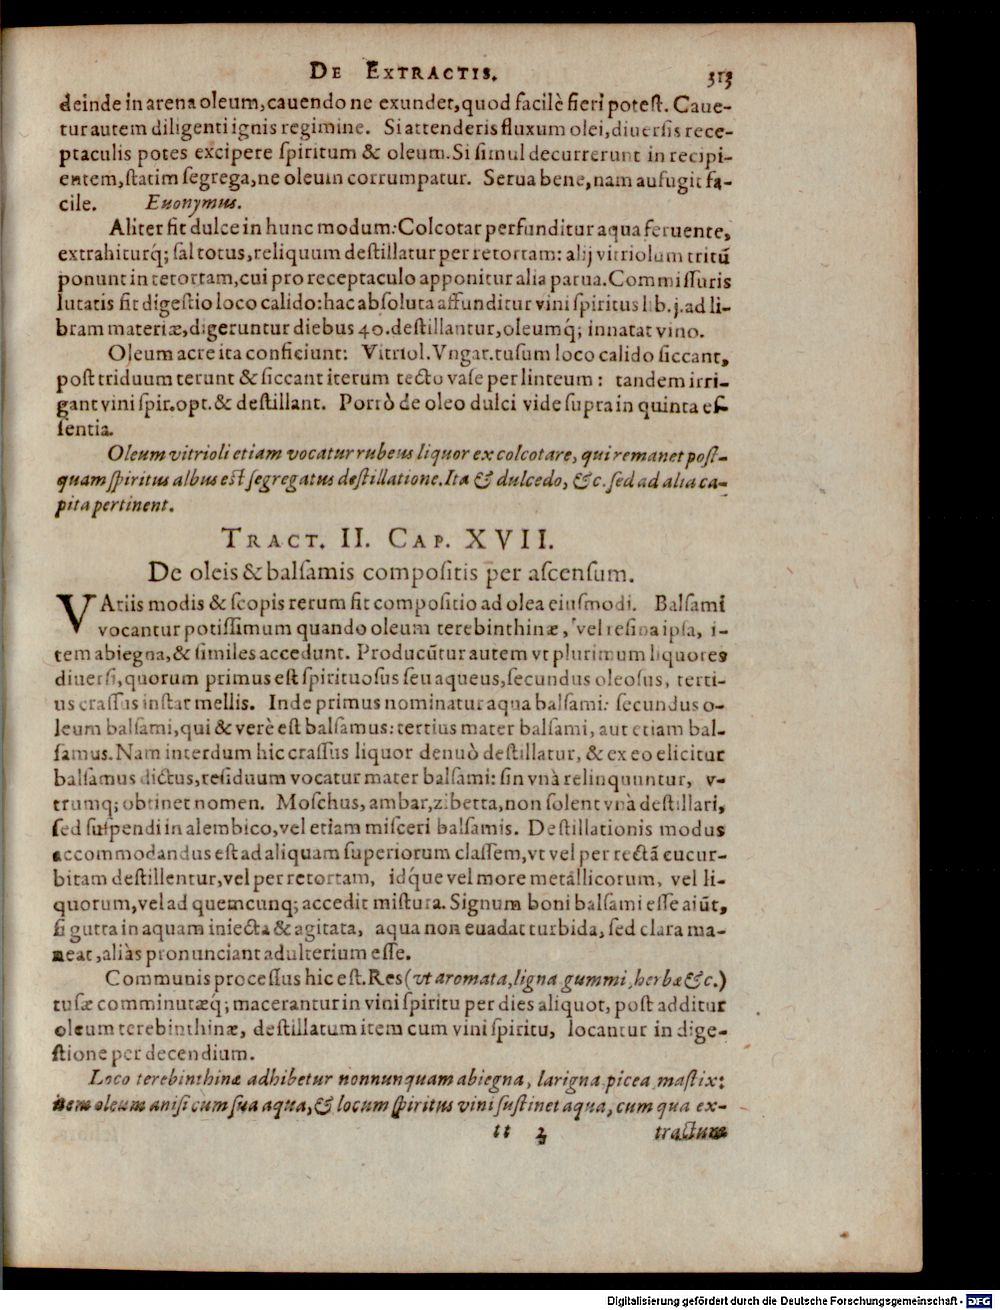 DE EXTRACTIS. 313
deinde in arena oleum, cauendo ne exundet, quod facilè fieri potest. Caue-
tur autem diligenti ignis regimine. Si attenderis fluxum olei, diuersis rece-
ptaculis potes excipere spiritum & oleum. Si simul decurrerunt in recipi-
entem, statim segrega, ne oleum corrumpatur. Serua bene, nam aufugit fa-
cile. Euonymus.
Aliter fit dulce in hunc modum: Colcotar perfunditur aqua feruente,
extrahiturq́; sal totus, reliquum destillatur per retortam: alij vitriolum tritū
ponunt in retortam, cui pro receptaculo apponitur alia parua. Commissuris
lutatis fit digestio loco calido: hac absoluta affunditur vini spiritus lib. j. ad li-
bram materiæ, digeruntur diebus 40. destillantur, oleumq́; innatat vino.
Oleum acre ita conficiunt: Vitriol. Vngar. tusum loco calido siccant,
post triduum terunt & siccant iterum tecto vase per linteum: tandem irri-
gant vini spir. opt. & destillant. Porrò de oleo dulci vide supra in quinta es-
sentia.
Oleum vitrioli etiam vocatur rubeus liquor ex colcotare, qui remanet post-
quam spiritus albus est segregatus destillatione. Ita & dulcedo, &c. sed ad alia ca-
pita pertinent.
TRACT. II. CAP. XVII.
De oleis & balsamis compositis per ascensum.
VAriis modis & scopis rerum fit compositio ad olea eiusmodi. Balsami
vocantur potissimum quando oleum terebinthinæ, vel resina ipsa, i-
tem abiegna, & similes accedunt. Producūtur autem vt plurimum liquores
diuersi, quorum primus est spirituosus seu aqueus, secundus oleosus, terti-
us crassus instar mellis. Inde primus nominatur aqua balsami: secundus o-
leum balsami, qui & verè est balsamus: tertius mater balsami, aut etiam bal-
samus. Nam interdum hic crassus liquor denuò destillatur, & ex eo elicitur
balsamus dictus, residuum vocatur mater balsami: sin vnà relinquuntur, v-
trumq; obtinet nomen. Moschus, ambar, zibetta, non solent vnà destillari,
sed suspendi in alembico, vel etiam misceri balsamis. Destillationis modus
accommodandus est ad aliquam superiorum classem, vt vel per rectā cucur-
bitam destillentur, vel per retortam, idque vel more metallicorum, vel li-
quorum, vel ad quemcunq; accedit mistura. Signum boni balsami esse aiūt,
si gutta in aquam iniecta & agitata, aqua non euadat turbida, sed clara ma-
neat, aliàs pronunciant adulterium esse.
Communis processus hic est. Res (vt aromata, ligna gummi, herbæ &c.)
tusæ comminutæq́; macerantur in vini spiritu per dies aliquot, post additur
oleum terebinthinæ, destillatum item cum vini spiritu, locantur in dige-
stione per decendium.
Loco terebinthinæ adhibetur nonnunquam abiegna, larigna picea mastix:
item oleum anisi cum sua aqua, & locum spiritus vini sustinet aqua, cum qua ex-
tt 2 tractum
Digitalisierung gefördert durch die Deutsche Forschungsgemeinschaft - DFG